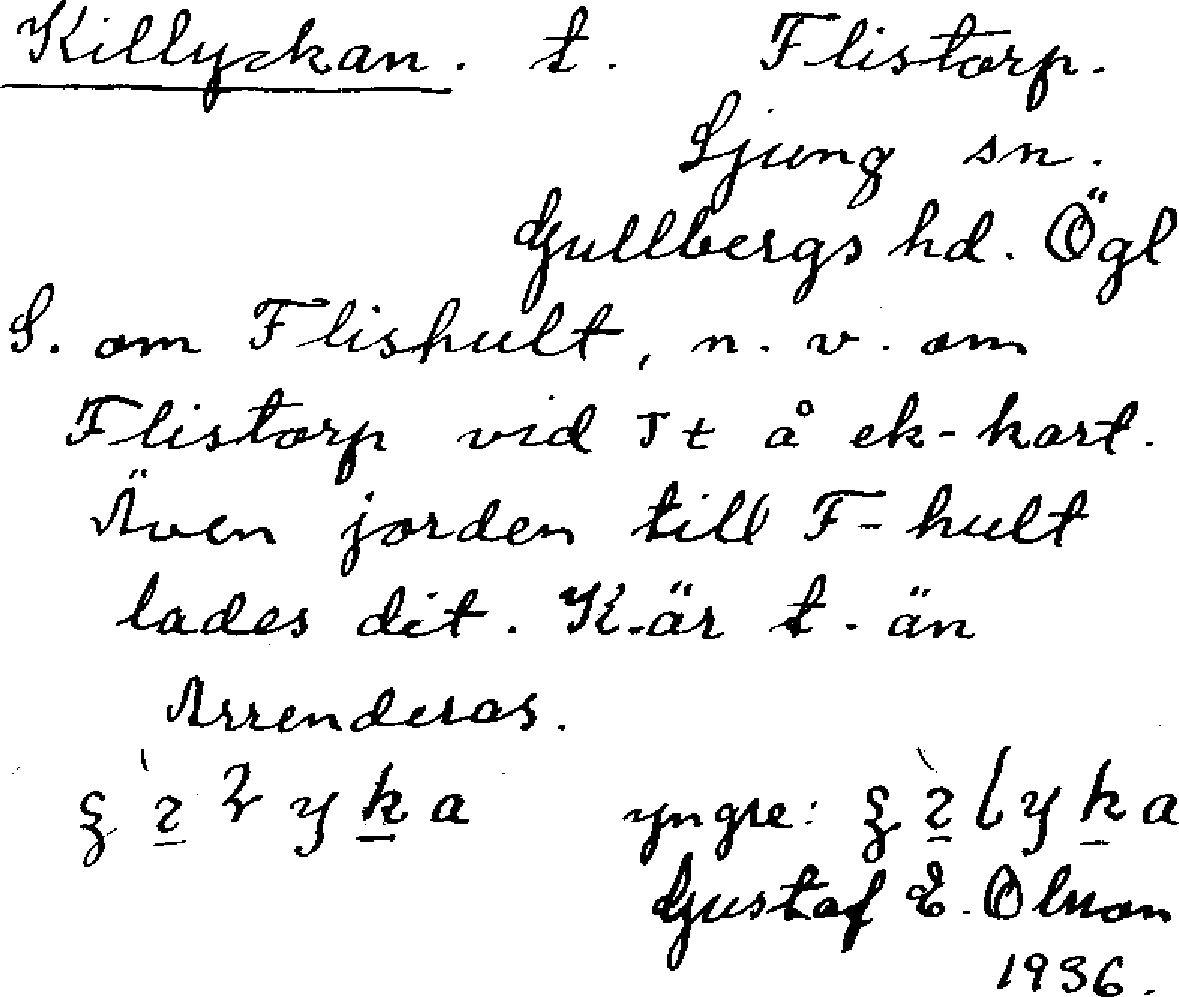 Killyckan. t. Flistorp.
Ljung sn.
Gullbergs hd. Ögl
S. om Flishult, n. v. om
Flistorp vid Tt å ek-kart.
Även jorden till F-hult
lades dit. K. är t. än
Arrenderas.
yngre:
Gustaf E. Olsson
1936.